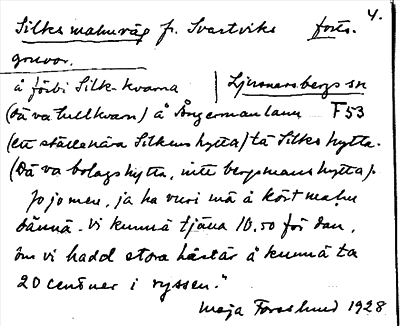 4.
Silkes malmväg fr. Svartviks forts.
gruvor.
å förbi Silk-kvarna | Ljusnarsbergs sn
(dä va tullkvarn) å Ångermanlann F53
(ett ställe nära Silkens hytta) tä Silkes hytta.
(Dä va bolagshytta, inte bergsmanshytta).
Jo jo men, ja ha vuri må å kört malm
dännä. Vi kunnä tjäna 10.50 för dan,
öm vi hadd stora hästär å kunnä ta
20 centner i ryssen."
Maja Forsslund 1928